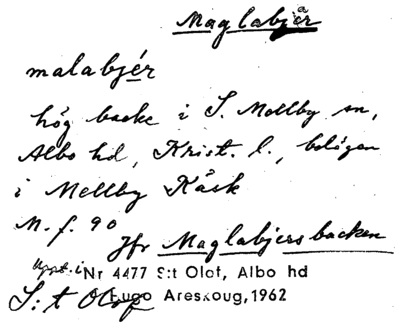 Maglabjär
malabjér
hög backe i S. Mellby sn,
Albo hd, Krist. l., belägen
i Mellby Kåsk
M. f. 90
Jfr Maglabjersbacken
Uppt. i Nr 4477 S:t Olof, Albo hd
S:t Olof Hugo Areskoug, 1962